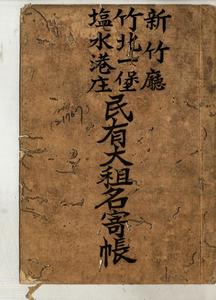 新竹廳
竹北一堡
塩水港庄
民有大租名寄帳